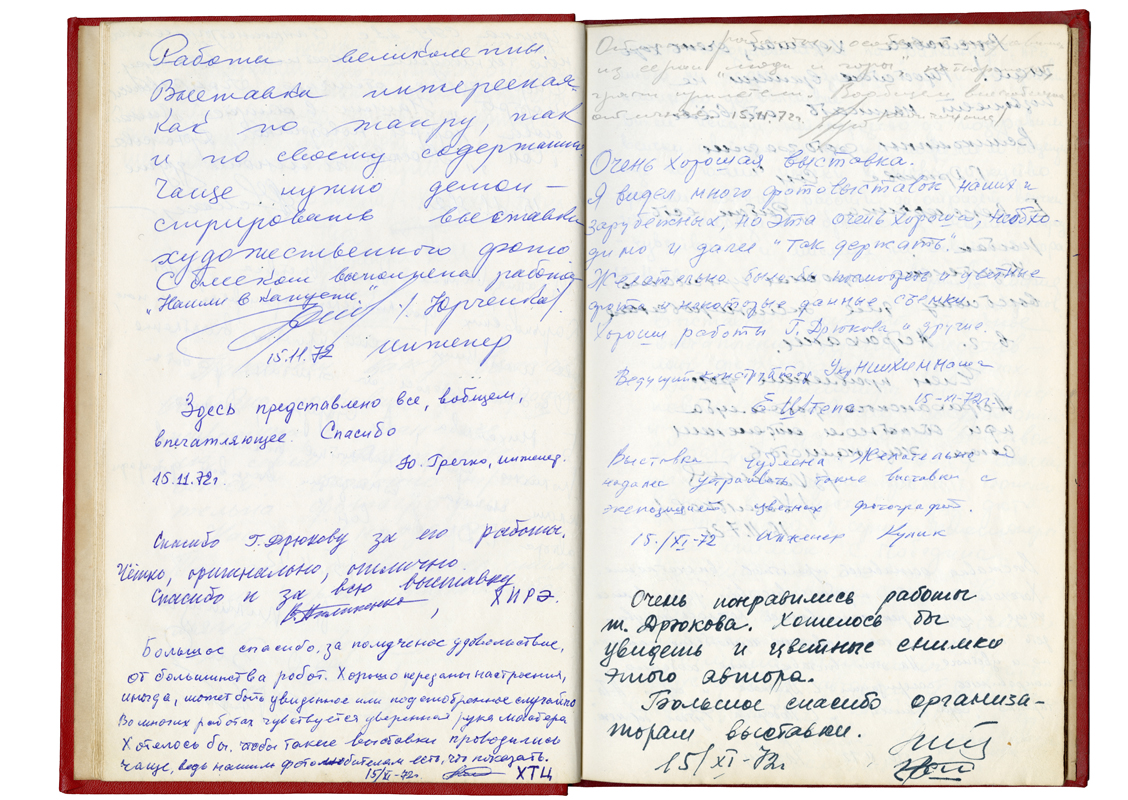 Работы великолепны
Выставка интересная
как по жанру, так
и по своему содержанию
Чаще нужно демон-
стрировать выставки
художественного фото
С смехом выполнена работа
"Нашли в капусте." / Юрченко /
15.11.72 инженер
Здесь представлено все, вобщем,
впечатляющее. Спасибо
Ю. Гречко, инженер.
15.11.72г.
Спасибо Г. Дрюкову за его работы.
Чётко, оригинально, отлично.
Спасибо и за всю выставку
, ХИРЭ.
Большое спасибо, за полученое удовольствие,
от большинства работ. Хорошо переданы настроения,
иногда, может быть увиденное или подсмотренное случайно
Во многих работах чувствуется уверенная рука мастера
Хотелось бы, чтобы такие выставки проводились
чаще, ведь нашим фотолюбителям есть, что показать.
15/XI-72г. ХТЦ
из серии "Люди и горы"
15.11.72г.
Очень хорошая выставка.
Я видел много фотовыставок наших и
зарубежных, но эта очень хороша, необхо-
димо и далее "так держать".
Желательно было бы посмотреть и цветные
фото и некоторые данные съемки.
Хороши работы Г. Дрюкова и другие.
Ведущий конструктор
15-XI-72г.
Выставка чудесна. Желательно
устраивать такие выставки с
экспозицией цветных фотографий.
15/XI-72 Инженер Кулик
Очень понравились работы
т. Дрюкова. Хотелось бы
увидеть и цветные снимки
этого автора.
Большое спасибо организа-
торам выставки.
15/XI-72г